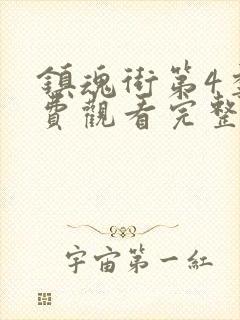 鎮魂街第4
費觀看完整
宇宙第一紅